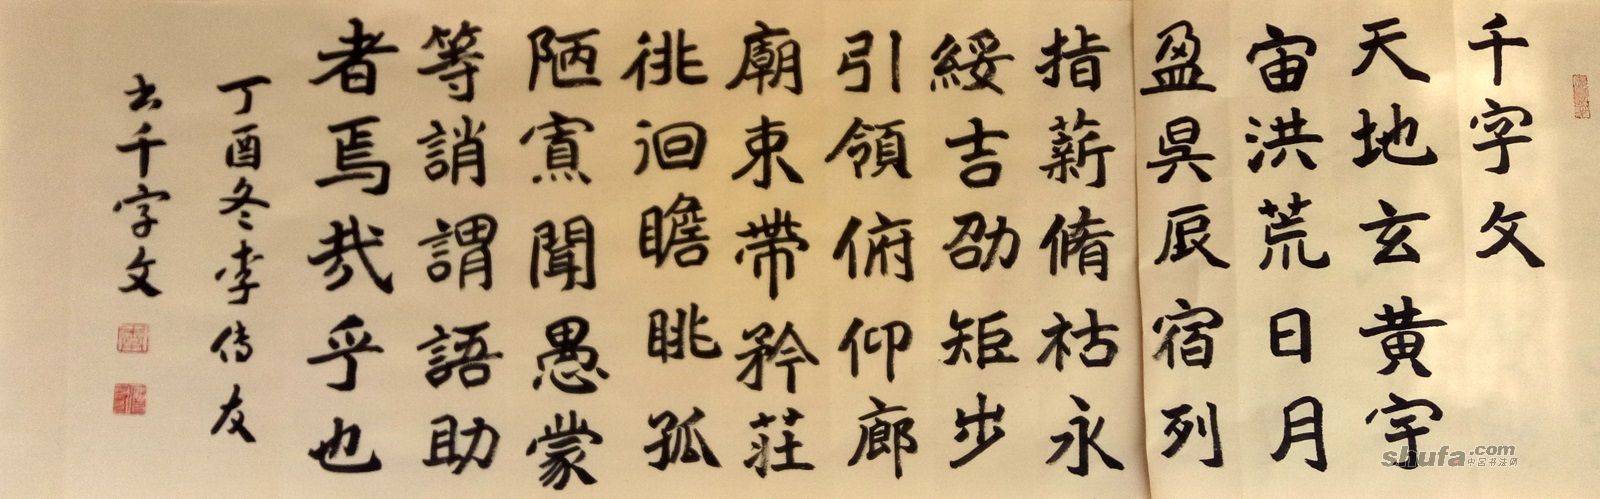 千字文
天地玄黄宇
宙洪荒日月
盈昃辰宿列
指薪脩祜永
綏吉劭矩步
引領俯仰廊
廟束帶矜莊
徘徊瞻眺孤
陋寡聞愚蒙
等誚謂語助
者焉哉乎也
丁酉冬李傳友
书千字文
shufa.com
中国书法网